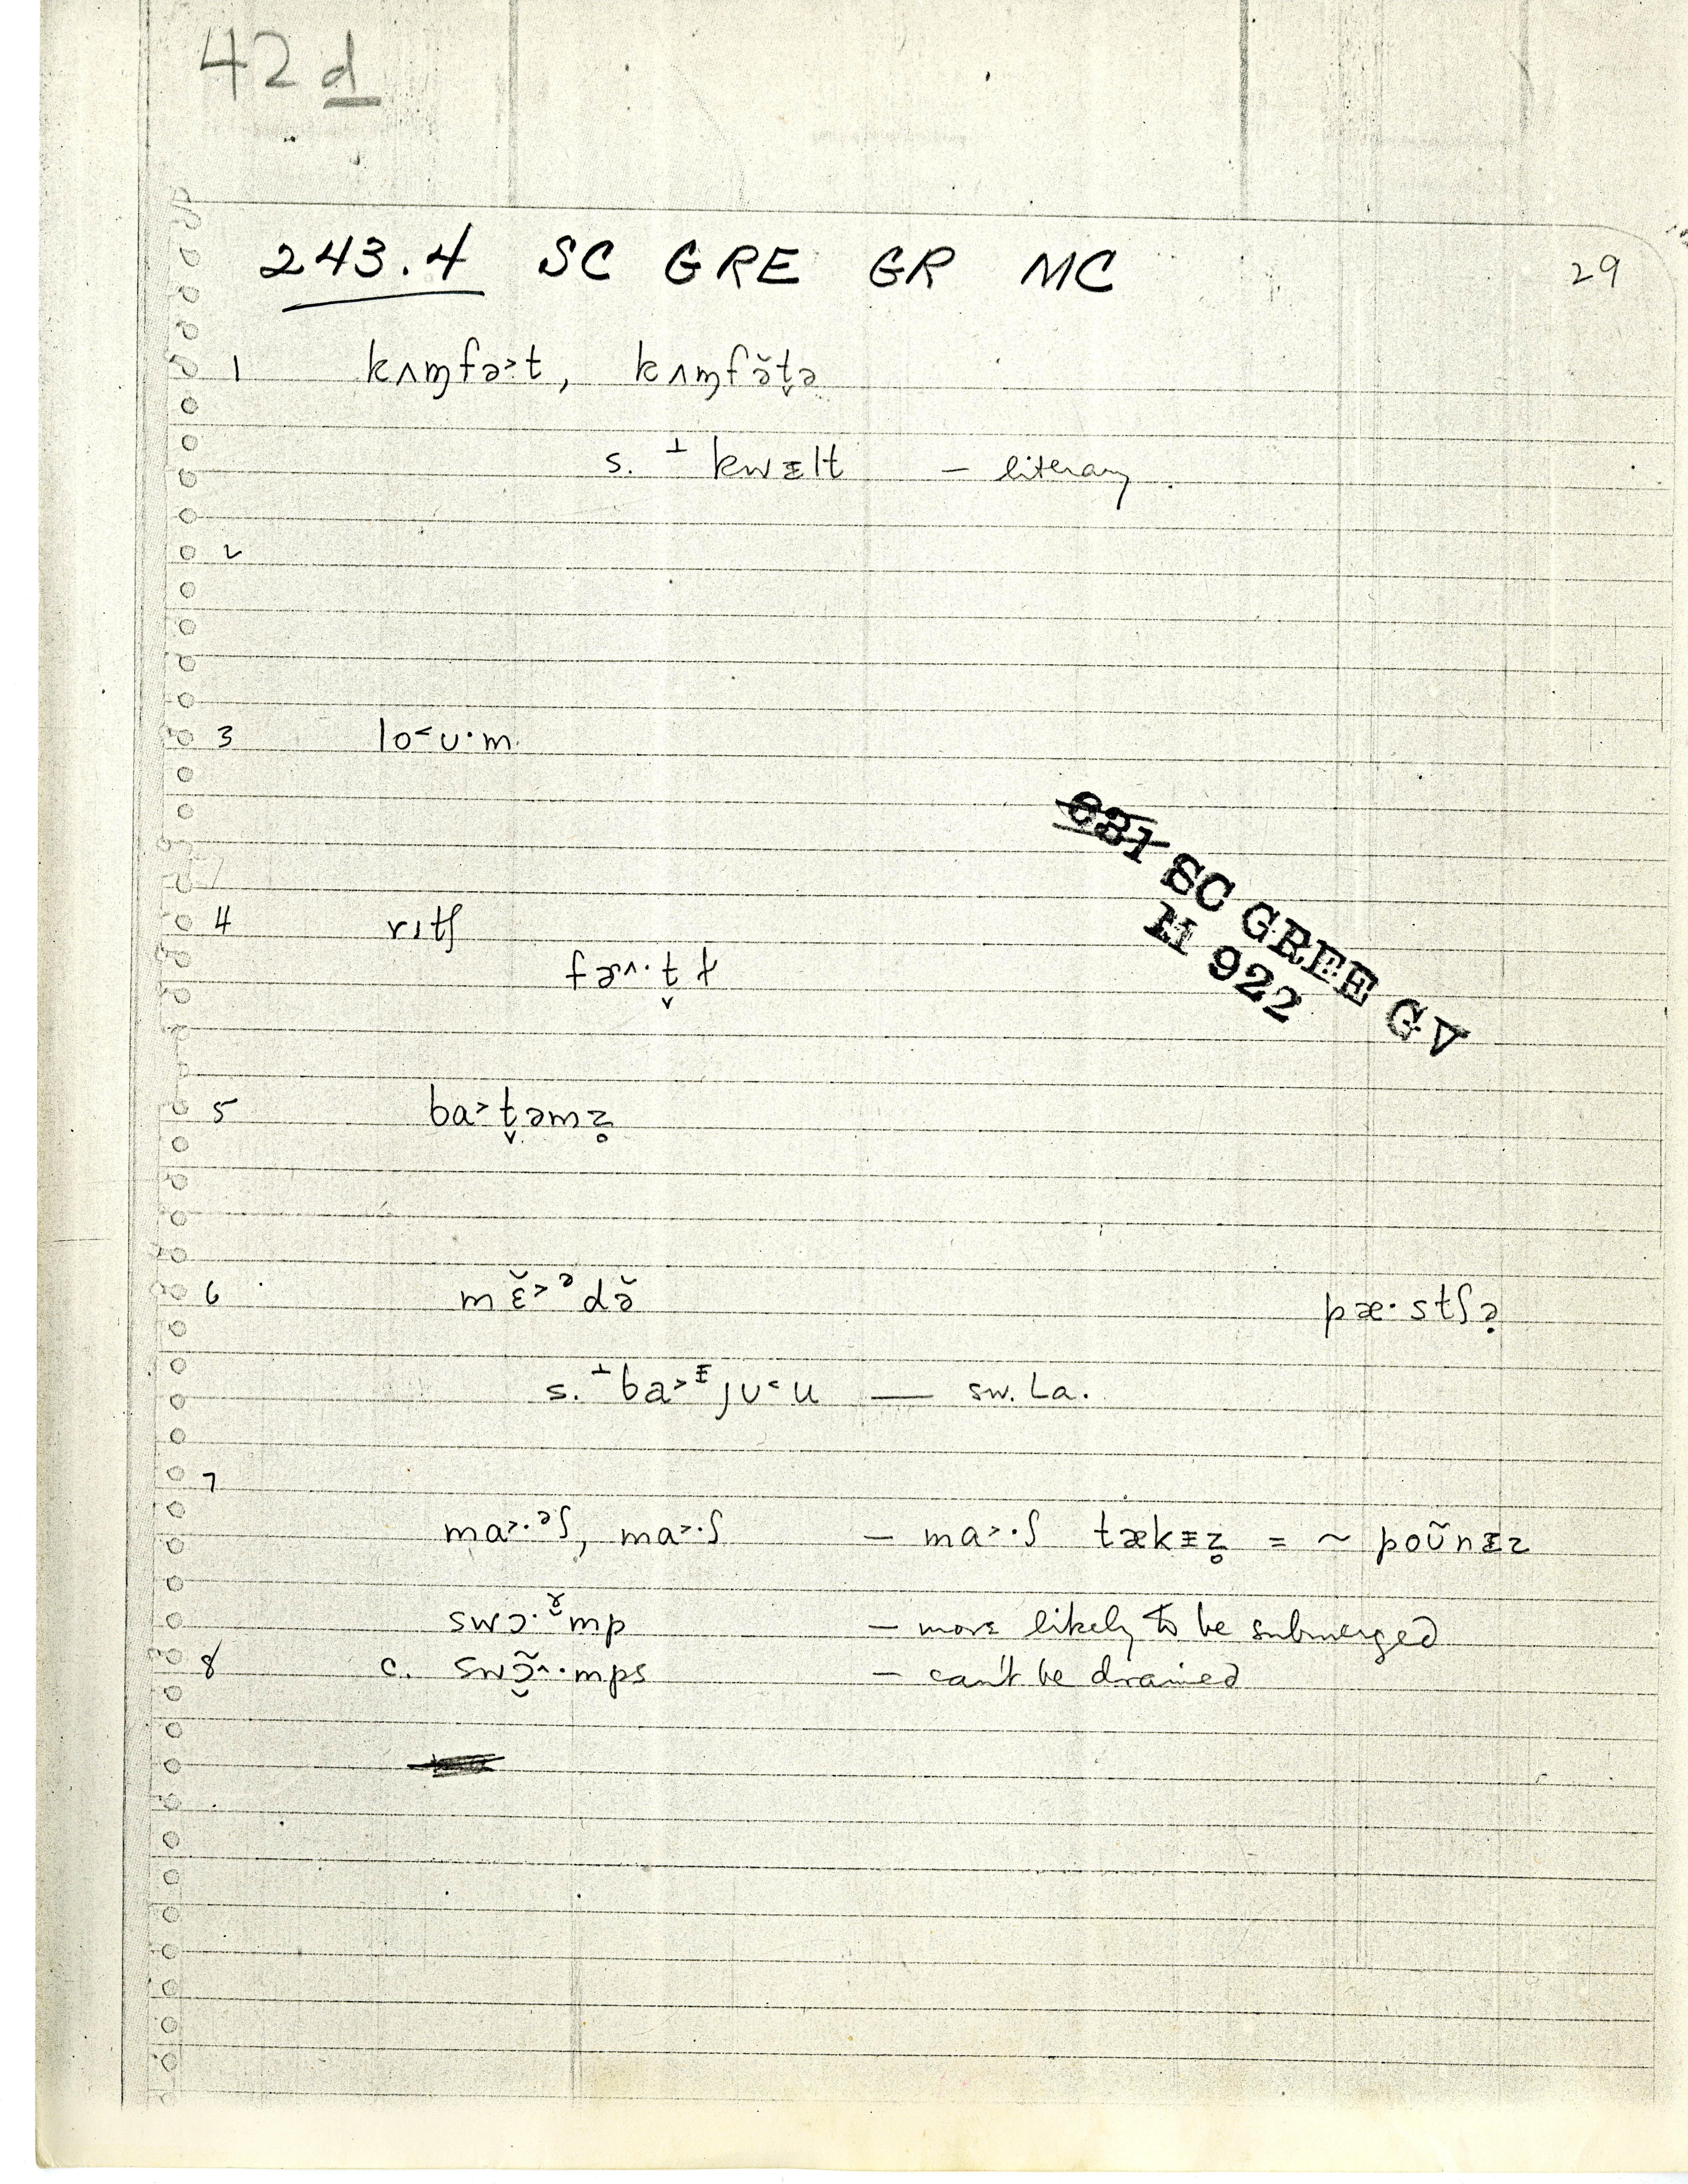 42d
243.4 SC GRE GR MC 29
1 kʌɱfə˃t, kʌɱfə̆t̬ə
s. ⊥ kwᵻlt – literary.
2
3 lo˂ʊ·m
031 SC GREE GV
M 922
4 rɪtʃ
fɚ^·t̬ɫ
5 ba˃t̬əmz̥
6 mɛ̆˃ᵊdə̆ pæ·stʃə̣
s. ⊥ba˃ᵻjʊ˂u — sw. La.
7
ma˃·ᵊʃ, ma˃·ʃ – ma˃·ʃ tækᵻz̥ = ~ poʊ̃nᵻz
swɔ·ɤ̆mp – more likely to be submerged
8 c. swɔ̜̃^·mps – can't be drained